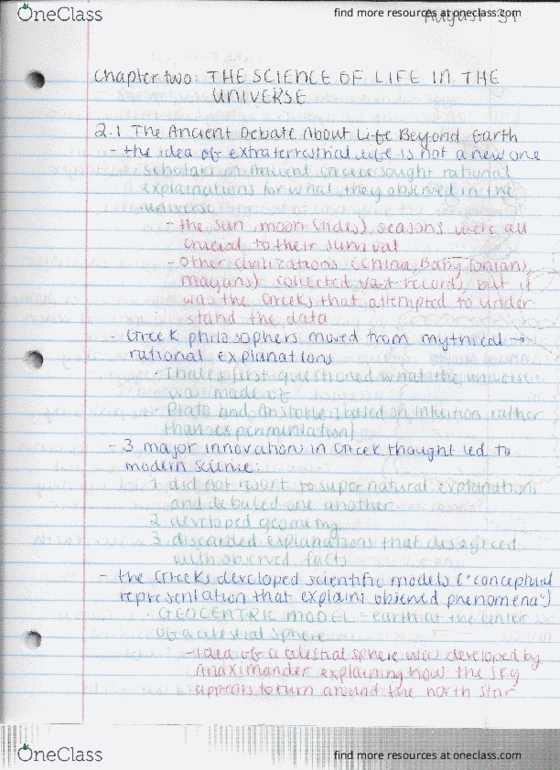 OneClass
find more resources at oneclass.com
August 31
Chapter two: THE SCIENCE OF LIFE IN THE
UNIVERSE
2.1 The Ancient Debate About Life Beyond Earth
- the idea of extraterrestrial life is not a new one
scholars in ancient Greece sought rational
explainations for what they observed in the
universe
- the sun, moon (tides), seasons were all
crucial to their survival
- Other civilizations (China, Babylonians,
Mayans) collected vast records, but it
was the Greeks that attempted to under-
stand the data
- Greek philosophers moved from mythical →
rational explanations
- Thales first questioned what the universe
was made of
Plato and Aristotle (based on intuition rather
than experimentation)
- 3 major innovations in Greek thought led to
modern science:
1 did not resort to supernatural explanations
and debated one another
2 developed geometry
3 discarded explanations that disagreed
with observed facts
- the Greeks developed scientific models ("conceptual
representation that explains observed phenomena")
· GEOCENTRIC MODEL = earth at the center
of a celestial sphere
- idea of a celestial sphere was developed by
Anaximander explaining how the sky
appears to turn around the north star
OneClass
find more resources at oneclass.com